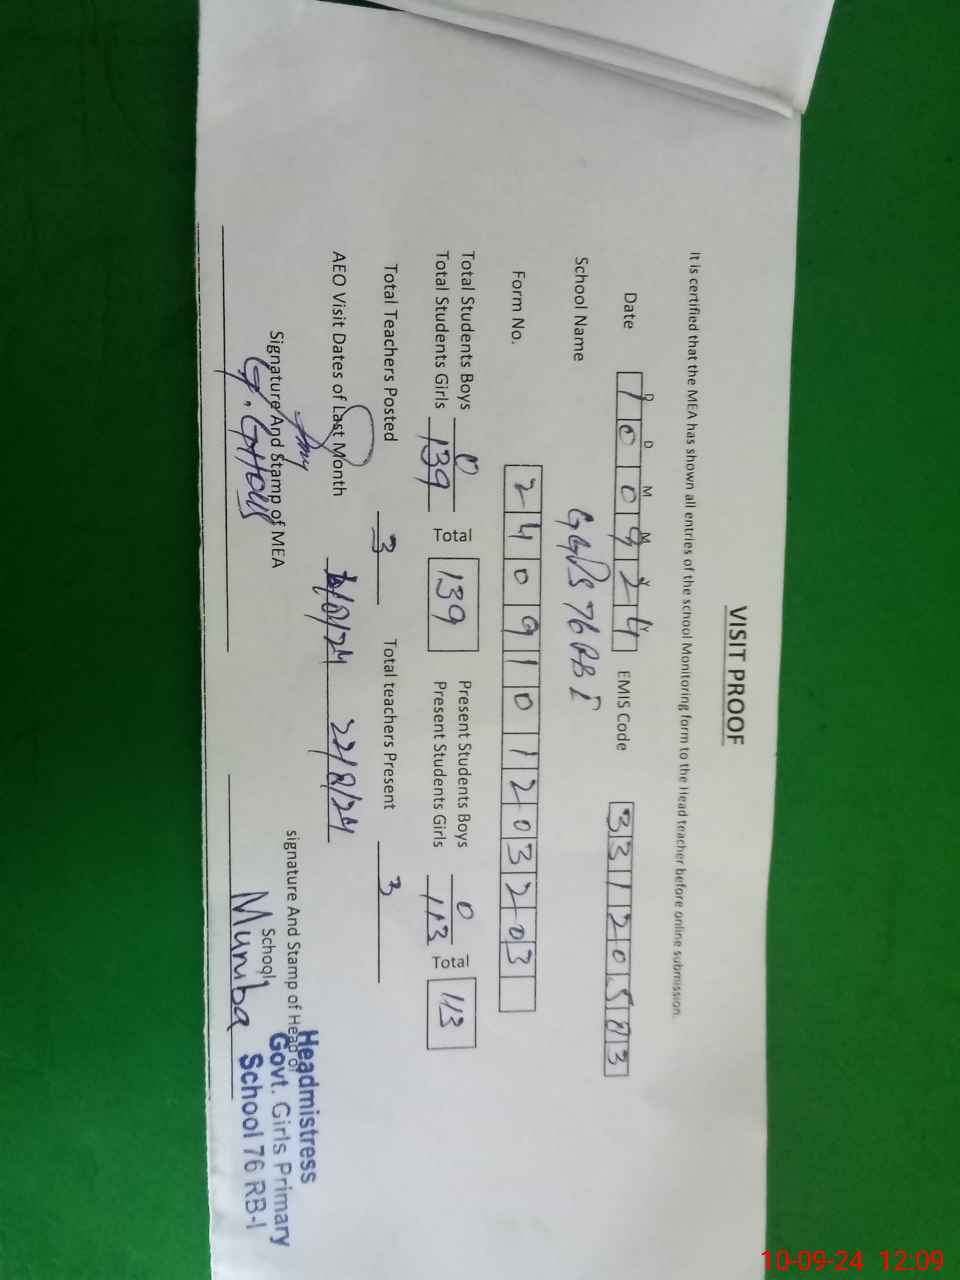 VISIT PROOF
It is certified that the MEA has shown all entries of the school Monitoring form to the Head teacher before online submission.
D D M M Y Y
Date 10 09 24 EMIS Code 33120583
School Name GGPS 76 RB I
Form No. 2409101203203
Total Students Boys 0 Total 139 Present Students Boys 0 Total 113
Total Students Girls 139 Present Students Girls 113
Total Teachers Posted 3 Total teachers Present 3
AEO Visit Dates of Last Month /8/24 22/8/24
Signature And Stamp of MEA signature And Stamp of Head of School
G. GHOUS Mumba
Headmistress
Govt. Girls Primary
School 76 RB-I
10-09-24 12:09